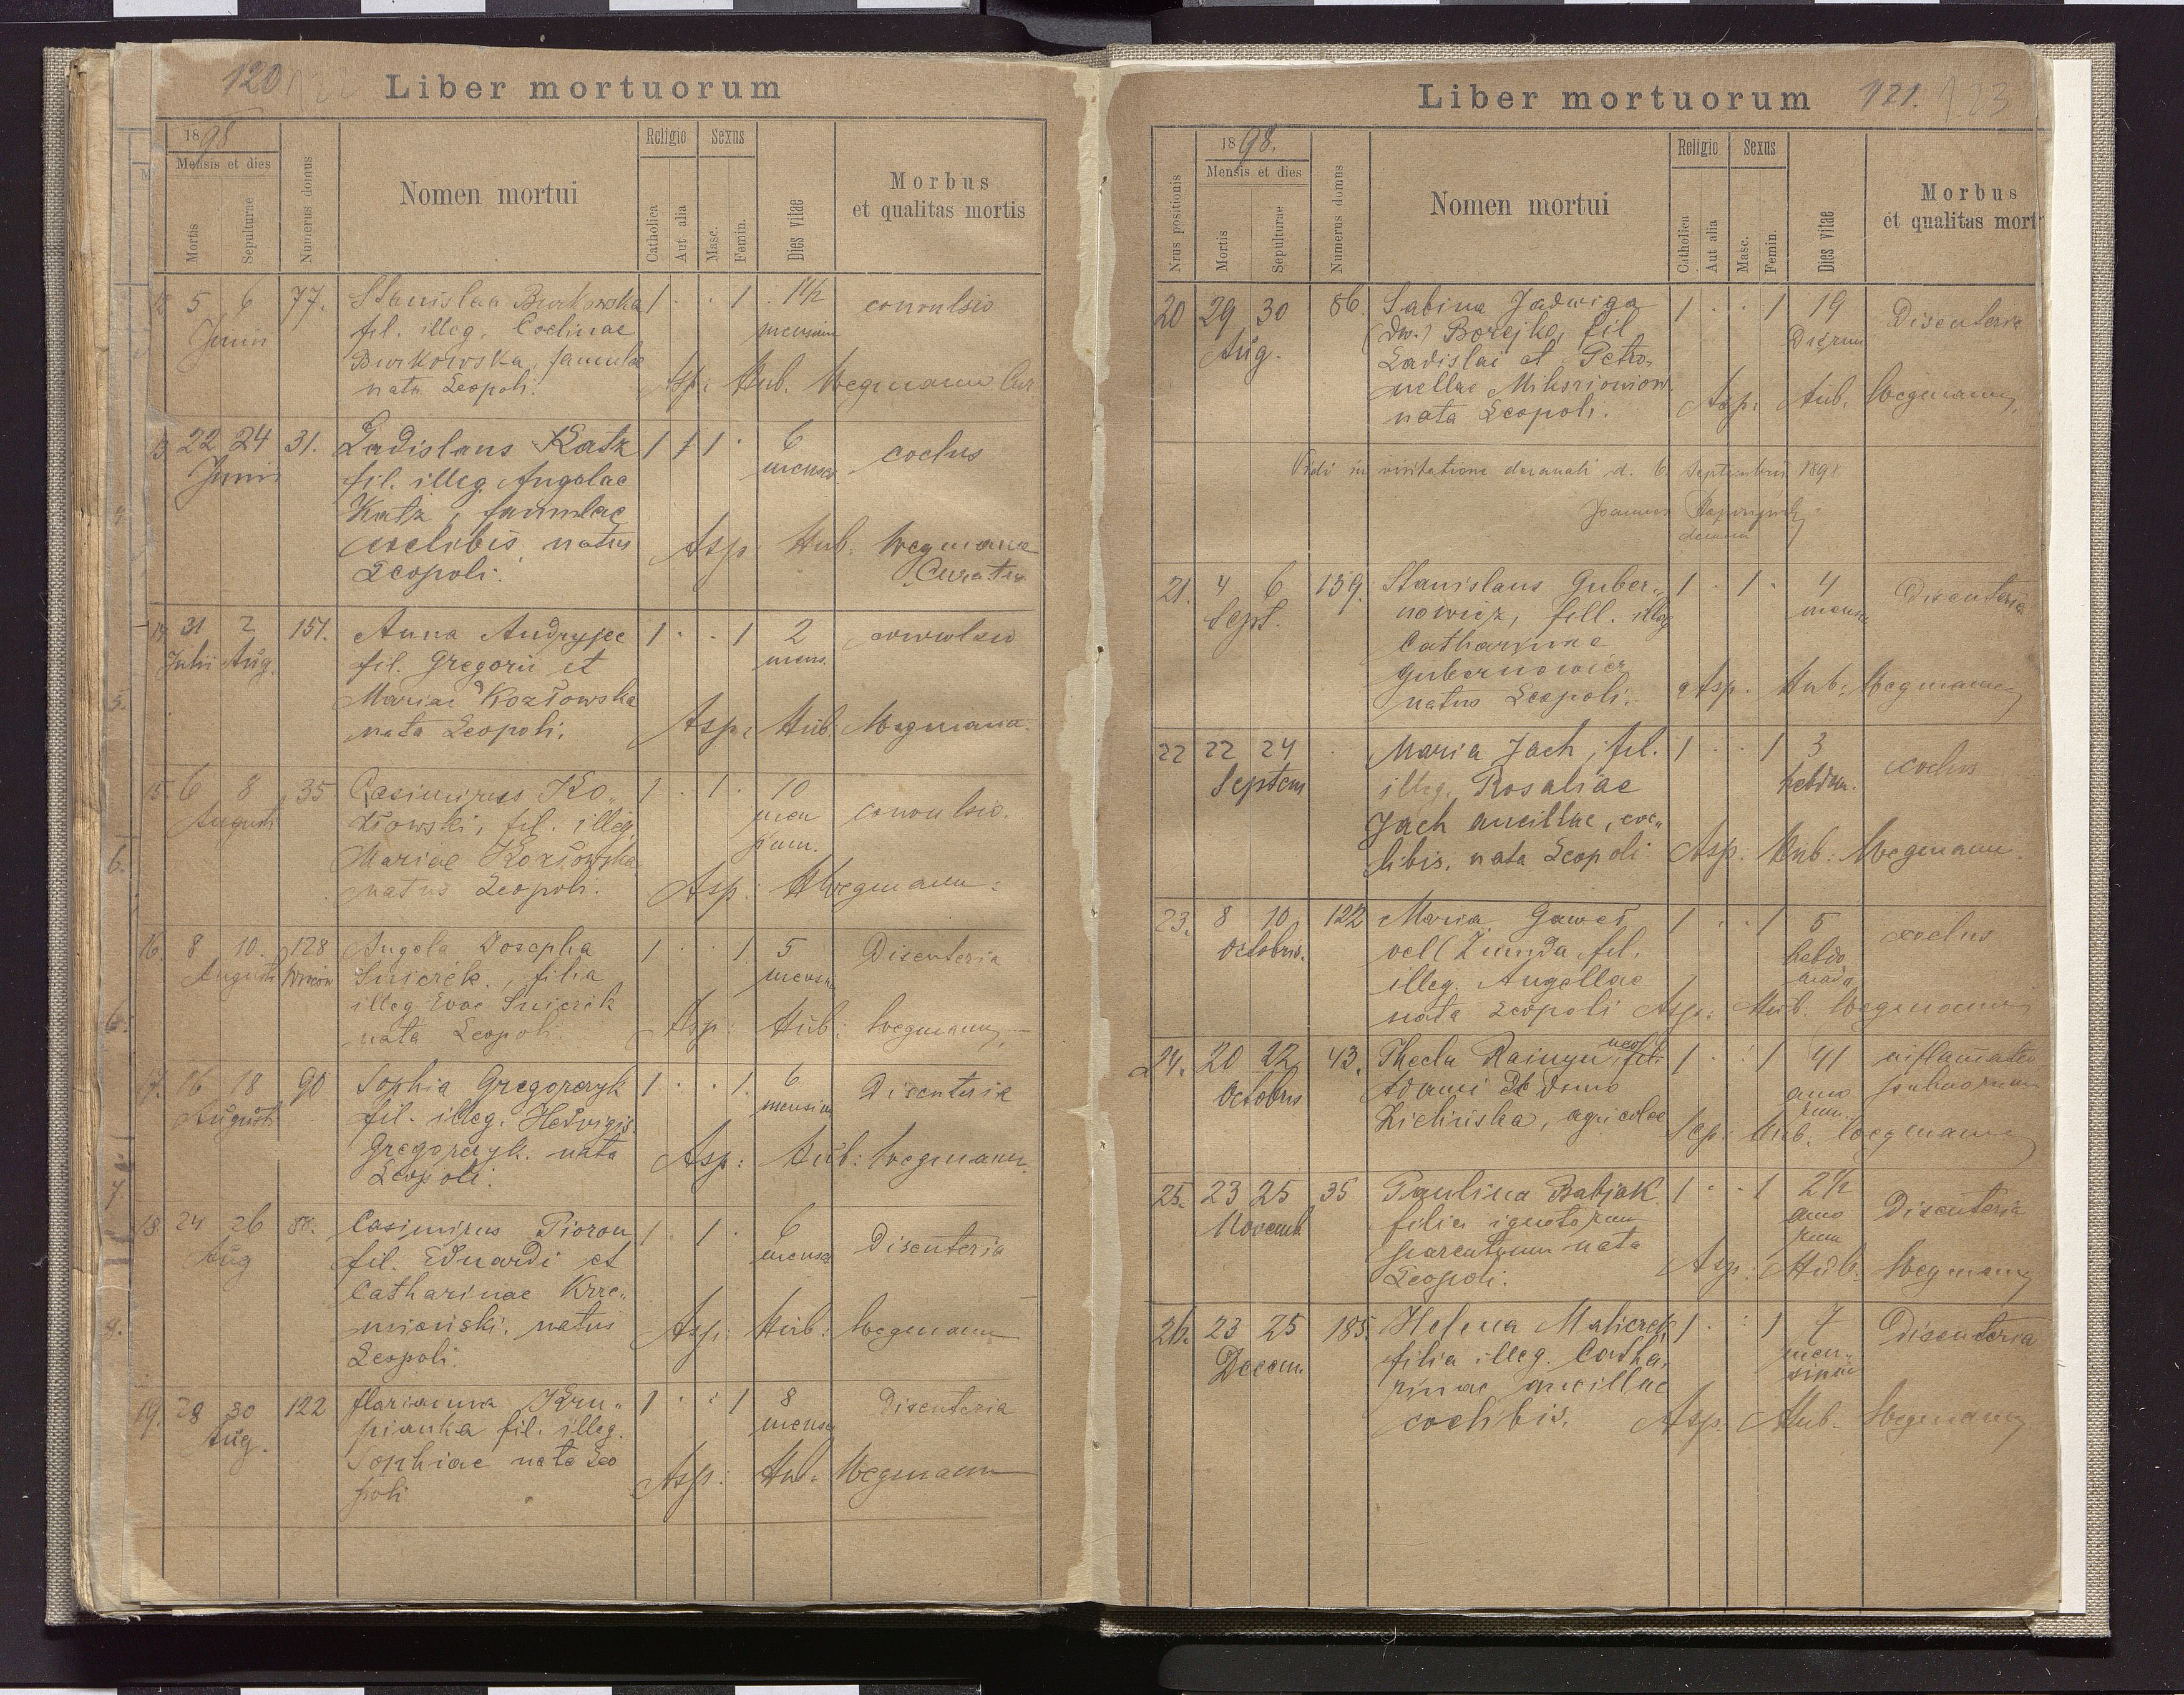 120 122 Liber mortuorum
1898
Mensis et dies
Mortis
Sepulturae
Numerus domus
Nomen mortui
Religio
Catholica
Aut alia
Sexus
Masc.
Femin.
Dies vitae
Morbus
et qualitas mortis
12 5 6 77. Stanislaa Burkowska 1 · · 1 1½ convulsio
Junii fil. illeg. Coelinae mensium
Burkowska, famulae
nata Leopoli. Asp: Hub. Wegmann Cur
13. 22 24 31. Ladislaus Katz 1 1 1 · 6 coelus
Junii fil. illeg. Angelae menses
Katz, famulae
coelibis natus Asp: Hub. Wegmann
Leopoli. Curatus
14. 31 2 151. Anna Andryjec 1 · · 1 2 convulsio
Julii Aug. fil. Gregorii et mens.
Mariae Kozłowska
nata Leopoli. Asp: Hub. Wegmann
15. 6 8 35 Casimirus Ko„ 1 · 1 · 10 convulsio.
Augusti złowski, fil. illeg. men
Mariae Kozłowska sium.
natus Leopoli. Asp: HWegmann
16. 8 10. 128 Angela Josepha 1 · · 1. 5 Disenteria
Augusti filia mensium
illeg. Evae
nata Leopoli Asp: Hub: Wegmann
17. 16 18 90 Sophia Gregorczyk 1 · · 1. 6 Disenteria
Augusti fil. illeg. Hedvigis mensium
Gregorczyk. nata
Leopoli. Asp: Hub: Wegmann
18. 24 26 Casimirus Pioron 1 · 1 · 6 Disenteria
Aug fil. Eduardi et menses
Catharinae Krze„
mieński. natus
Leopoli. Asp: Hub: Wegmann
19. 28 30 122 Marianna Kru„ 1 · · 1 8 Disenteria
Aug. pianka fil. illeg. menses
Sophiae nata Leo
poli Asp: Hub. Wegmann
Liber mortuorum 121. 123
Nrus positionis
1898.
Mensis et dies
Mortis
Sepulturae
Numerus domus
Nomen mortui
Religio
Catholica
Aut alia
Sexus
Masc.
Femin.
Dies vitae
Morbus
et qualitas mort
20 29 30 86. Sabina Jadwiga 1 · · 1 19 Disenteria
Aug. (dw.) Borejko, fil. Dierum
Ladislai et Petro„
nellae
nata Leopoli. Asp: Hub. Wegmann
Vidi in visitatione decanali d. 6 Septembris 1898
Joannes
decanus
21. 4 6 159. Stanislaus Guber„ 1 · 1 · 4 Disenteria
Sept. nowicz, fill. illeg mensium
Catharinae
Gubernowicz
natus Leopoli. Asp. Hub. Wegmann
22 22 24 · Maria Jach, fil. 1 · · 1 3 coelus
Septem illeg. Rosaliae hebdm.
Jach ancillae, coe„
libis, nata Leopoli Asp. Hub: Wegmann
23. 8 10. 122 Maria Gaweł 1 · · 1 5 coelus
Octobris. vel ( fil. hebdo
illeg. Angellae mada
nata Leopoli Asp: Hub. Wegmann
24. 20 22 43. Thecla 1 · · 1 41 inflamatio
Octobris Adami de domo anno pulmonum
Zielinska, agricolae rum.
Sep: Hub. Wegmann
25. 23 25 35 Paulina Babjak 1 · · 1 2½ Disenteria
Novemb filia ignotorum anno
parentum nata rum
Leopoli. Asp: Hub: Wegmann
26. 23 25 185. Helena Malicrek 1 · · 1 7 Disenteria
Decem. filia illeg. Catha„ men„
rinae ancillae sium
coelibis. Asp. Hub. Wegmann